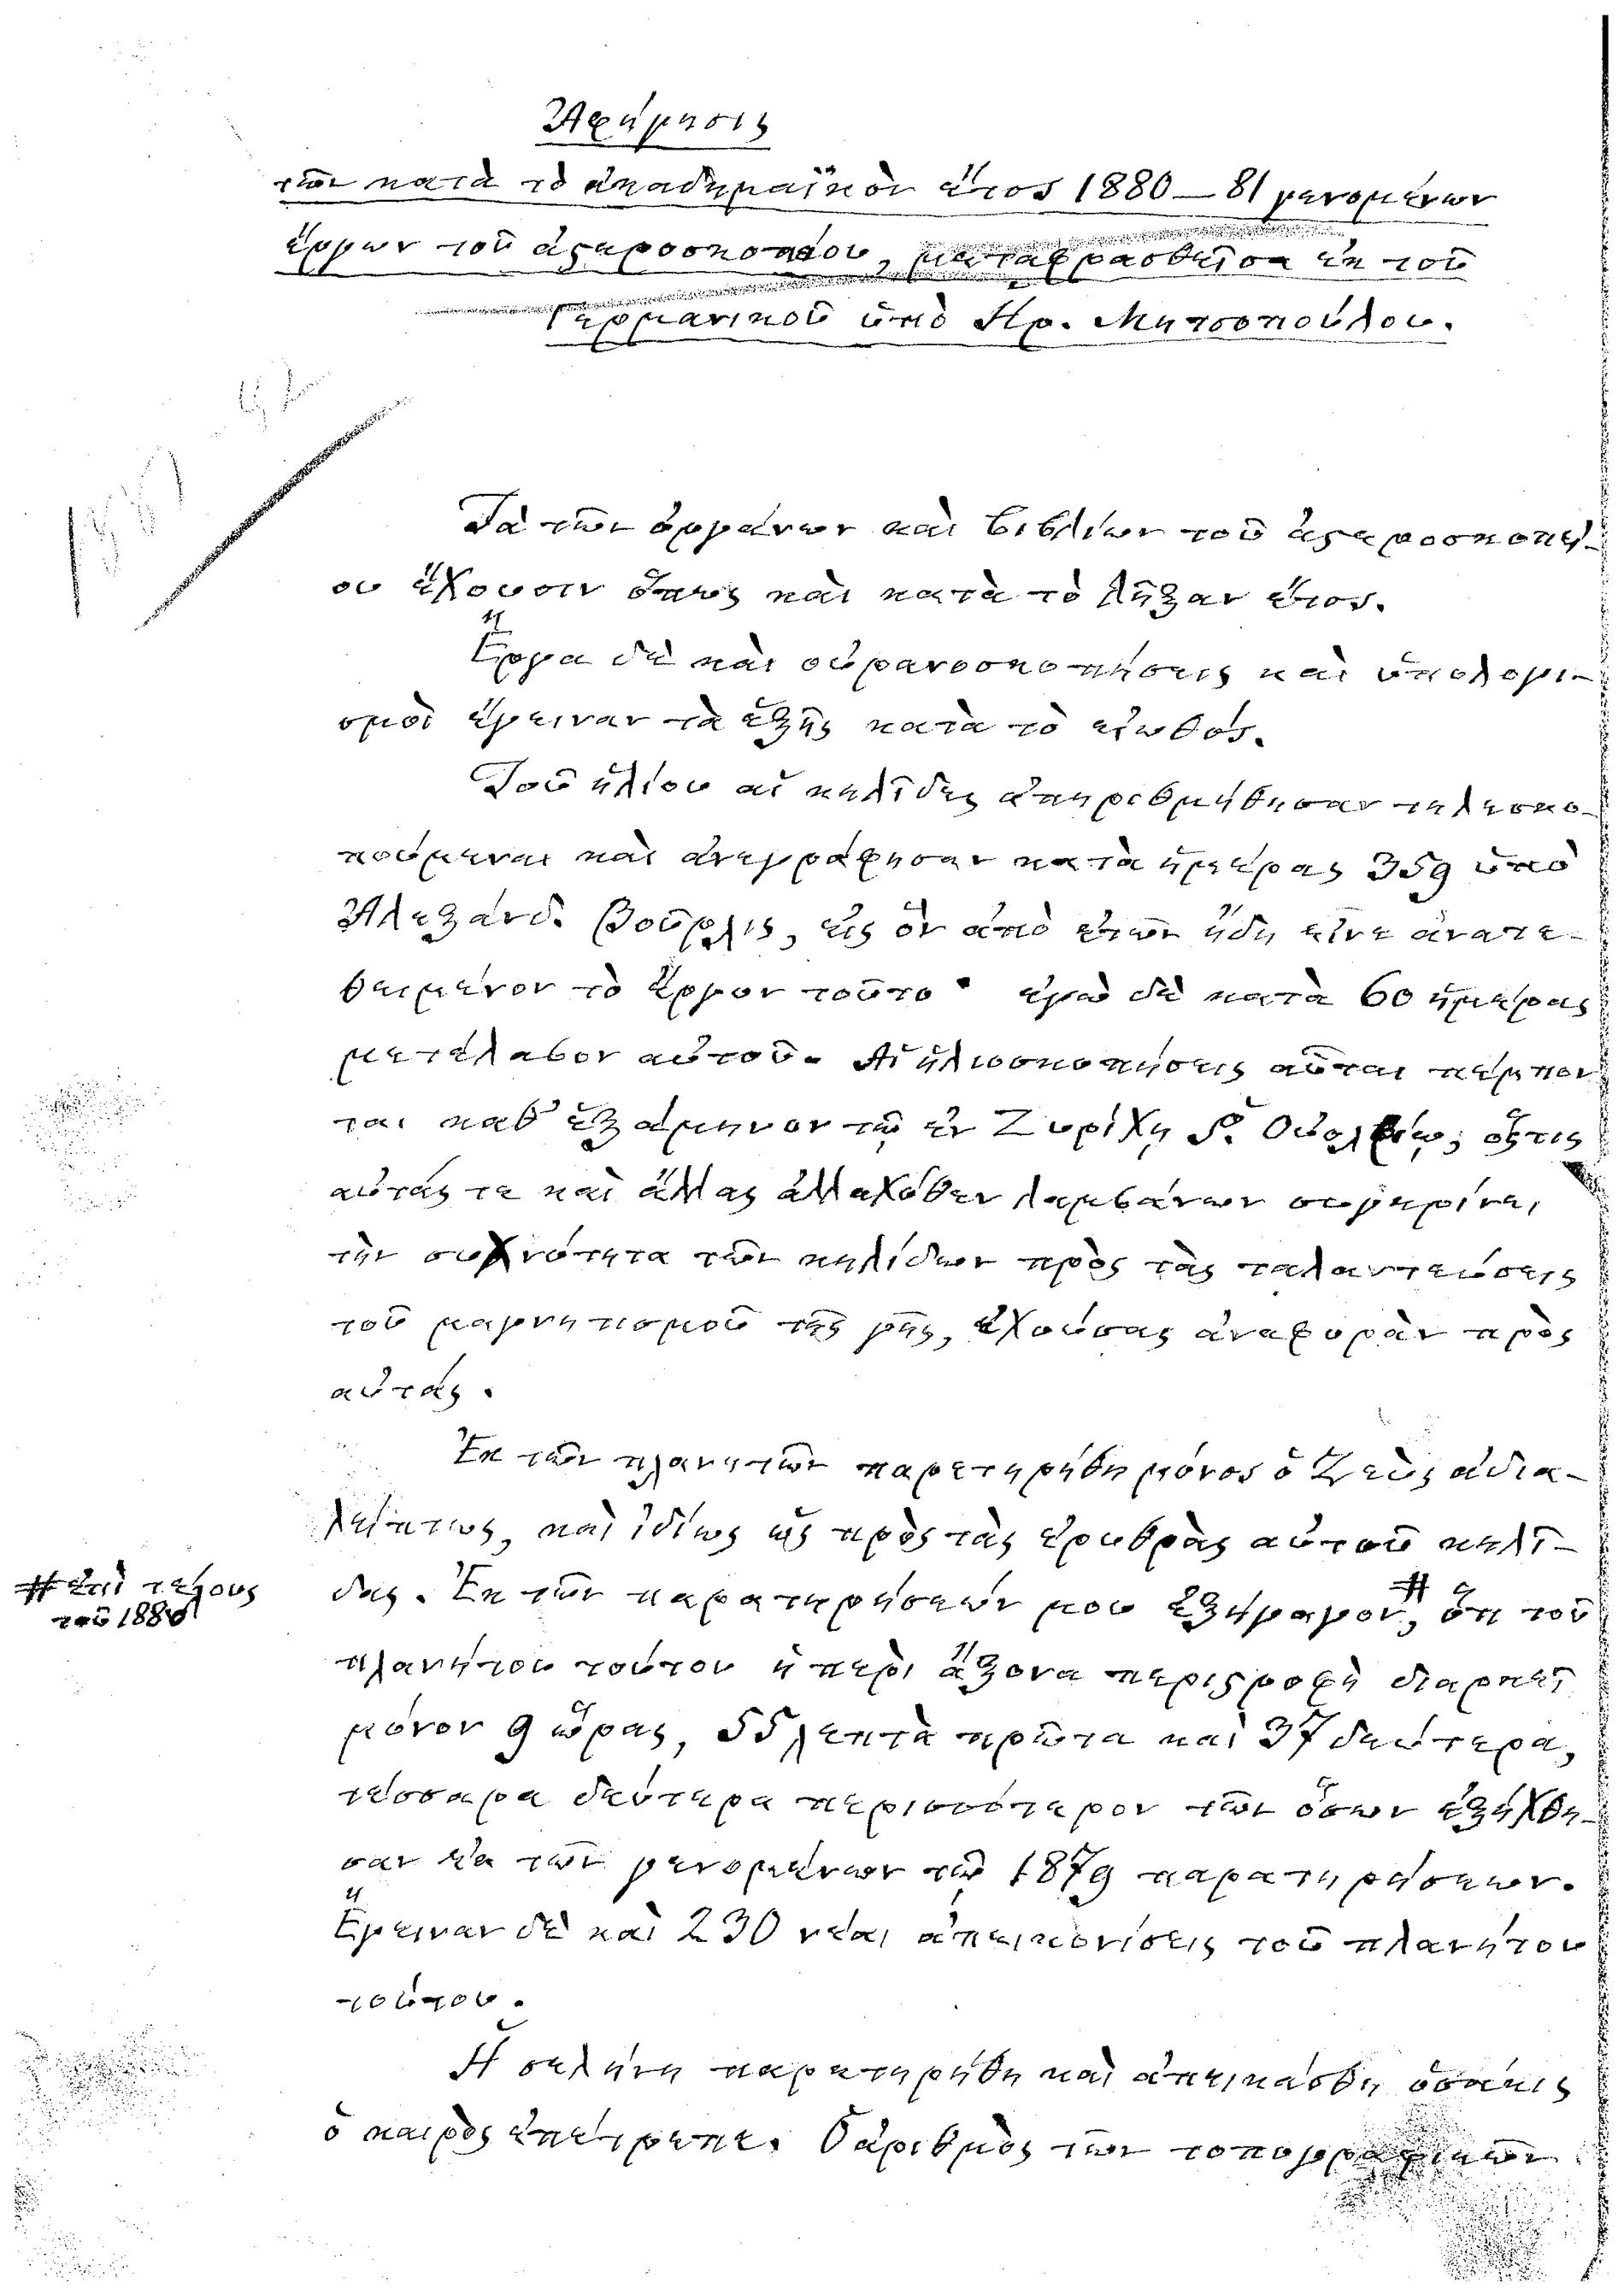 Ἀφήγησις
τῶν κατὰ τὸ ἀκαδημαϊκὸν ἔτος 1880—81 γενομένων
ἔργων τοῦ ἀστεροσκοπείου, μεταφρασθεῖσα ἐκ τοῦ
Γερμανικοῦ ὑπὸ Κρ. Μητσοπούλου.
Τὰ τῶν ὀργάνων καὶ βιβλίων τοῦ ἀστεροσκοπεί-
ου ἔχουσιν ὅπως καὶ κατὰ τὸ λῆξαν ἔτος.
Ἔργα δὲ καὶ οὐρανοσκοπήσεις καὶ ὑπολογι-
σμοὶ ἔγειναν τὰ ἑξῆς κατὰ τὸ εἰωθός.
Τοῦ ἡλίου αἱ κηλῖδες ἀπηριθμήθησαν τηλεσκο-
πούμεναι καὶ ἀνεγράφησαν κατὰ ἡμέρας 359 ὑπὸ
Ἀλεξάνδ. Βούρλις, εἰς ὃν ἀπὸ ἐτῶν ἤδη εἶνε ἀνατε-
θειμένον τὸ ἔργον τοῦτο· ἐγὼ δὲ κατὰ 60 ἡμέρας
μετέλαβον αὐτοῦ. Αἱ ἡλιοσκοπήσεις αὗται πέμπον
ται καθ' ἑξάμηνον τῷ ἐν Ζυρίχῃ Ρ. Οὐολφίῳ, ὅςτις
αὐτάς τε καὶ ἄλλας ἀλλαχόθεν λαμβάνων συγκρίνει
τὴν συχνότητα τῶν κηλίδων πρὸς τὰς ταλαντεύσεις
τοῦ μαγνητισμοῦ τῆς γῆς, ἐχούσας ἀναφορὰν πρὸς
αὐτάς.
Ἐκ τῶν πλανητῶν παρετηρήθη μόνος ὁ Ζεὺς ἀδια-
λείπτως, καὶ ἰδίως ὡς πρὸς τὰς ἐρυθρὰς αὐτοῦ κηλῖ-
δας. Ἐκ τῶν παρατηρήσεών μου ἐξήγαγον #, ὅτι τοῦ
# ἐπὶ τέλους
τοῦ 1880
πλανήτου τούτου ἡ περὶ ἄξονα περιστροφὴ διαρκεῖ
μόνον 9 ὥρας, 55 λεπτὰ πρῶτα καὶ 37 δεύτερα,
τέσσαρα δεύτερα περισσότερον τῶν ὅσων ἐξήχθη-
σαν ἐκ τῶν γενομένων τῷ 1879 παρατηρήσεων.
Ἔγειναν δὲ καὶ 230 νέαι ἀπεικονίσεις τοῦ πλανήτου
τούτου.
Ἡ σελήνη παρετηρήθη καὶ ἀπεικάσθη ὁσάκις
ὁ καιρὸς ἐπέτρεπε. Ὁ ἀριθμὸς τῶν τοπογραφικῶν